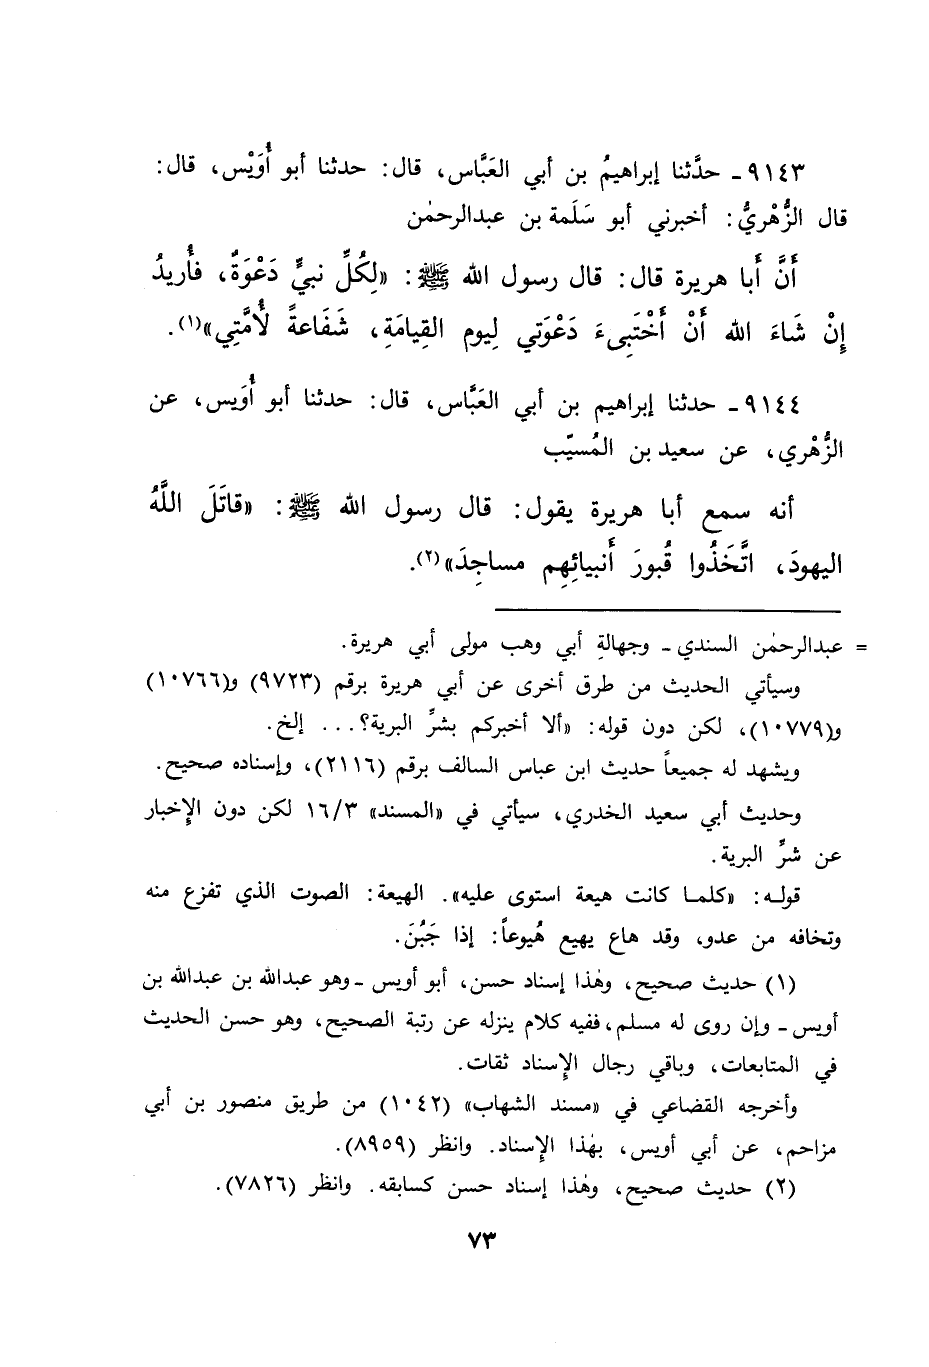 ٩١٤٣ـ حدَّثنا إبراهيمُ بن أبي العَبَّاس، قال: حدثنا أبو أُوَيْس، قال:
قال الزُّهْريُّ: أخبرني أبو سَلَمة بن عبدالرحمٰن
أَنَّ أَبا هريرة قال: قال رسول الله ﷺ: «لِكُلِّ نبيٍّ دَعْوَةٌ، فأُريدُ
إِنْ شَاءَ الله أَنْ أَخْتَبِىءَ دَعْوَتي لِيوم القِيامَةِ، شَفَاعةً لأُمَّتِي»(١).
٩١٤٤ـ حدثنا إبراهيم بن أبي العَبَّاس، قال: حدثنا أبو أُوَيس، عن
الزُّهْري، عن سعيد بن المُسيّب
أنه سمع أبا هريرة يقول: قال رسول الله ﷺ: «قاتَلَ اللَّهُ
اليهودَ، اتَّخَذُوا قُبورَ أَنبيائِهِم مساجِدَ»(٢).
= عبدالرحمٰن السندي ـ وجهالةِ أبي وهب مولى أبي هريرة.
وسيأتي الحديث من طرق أخرى عن أبي هريرة برقم (٩٧٢٣) و(١٠٧٦٦)
و(١٠٧٧٩)، لكن دون قوله: «ألا أخبركم بشرِّ البرية؟... إلخ.
ويشهد له جميعاً حديث ابن عباس السالف برقم (٢١١٦)، وإسناده صحيح.
وحديث أبي سعيد الخدري، سيأتي في «المسند» ١٦/٣ لكن دون الإخبار
عن شرِّ البرية.
قولـه: «كلمـا كانت هيعة استوى عليه». الهيعة: الصوت الذي تفزع منه
وتخافه من عدو، وقد هاع يهيع هُيوعاً: إذا جَبُنَ.
(١) حديث صحيح، وهٰذا إسناد حسن، أبو أويس ـ وهو عبدالله بن عبدالله بن
أويس ـ وإن روى له مسلم، ففيه كلام ينزله عن رتبة الصحيح، وهو حسن الحديث
في المتابعات، وباقي رجال الإسناد ثقات.
وأخرجه القضاعي في «مسند الشهاب» (١٠٤٢) من طريق منصور بن أبي
مزاحم، عن أبي أويس، بهٰذا الإسناد. وانظر (٨٩٥٩).
(٢) حديث صحيح، وهٰذا إسناد حسن كسابقه. وانظر (٧٨٢٦).
٧٣